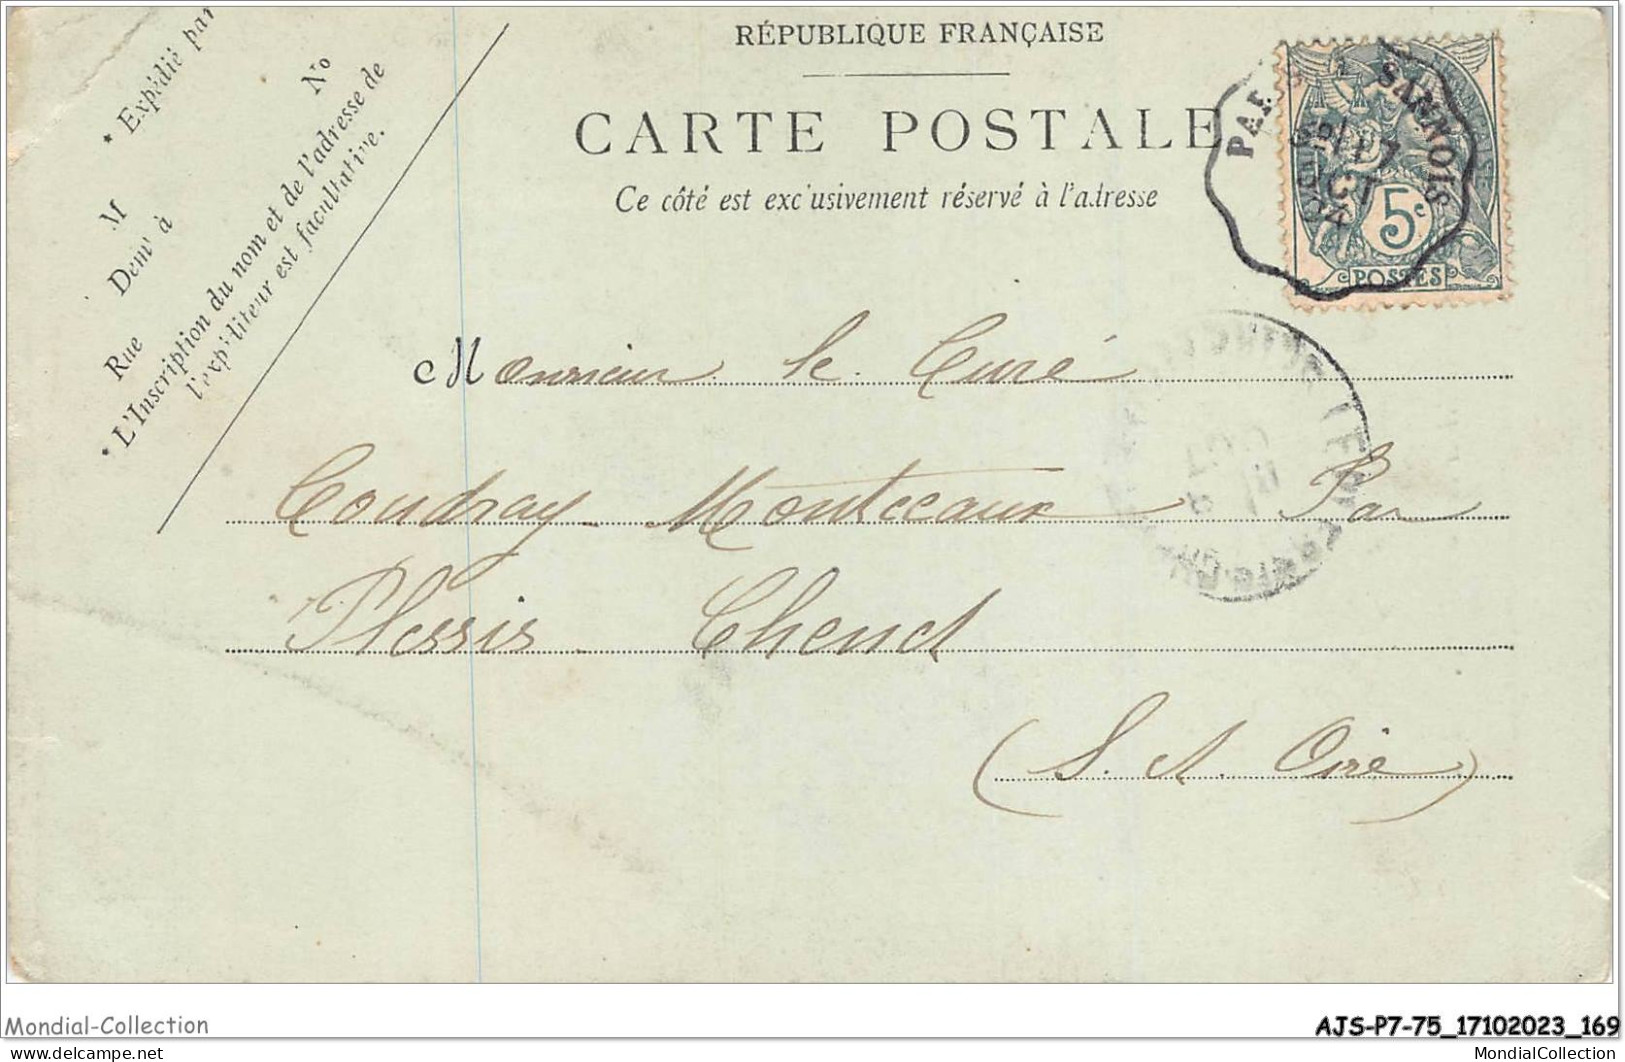 RÉPUBLIQUE FRANÇAISE
CARTE POSTALE
Ce côté est exclusivement réservé à l'adresse
* Expédié par
M
Demt à
Rue
No
* L'Inscription du nom et de l'adresse de
l'expéditeur est facultative.
SANNOIS
5c
POSTES
Monsieur le Curé
Coudray Montceaux Par
Plessis Chenet
(S. et Oise)
Mondial-Collection
AJS-P7-75_17102023_169
delcampe.net
MondialCollection